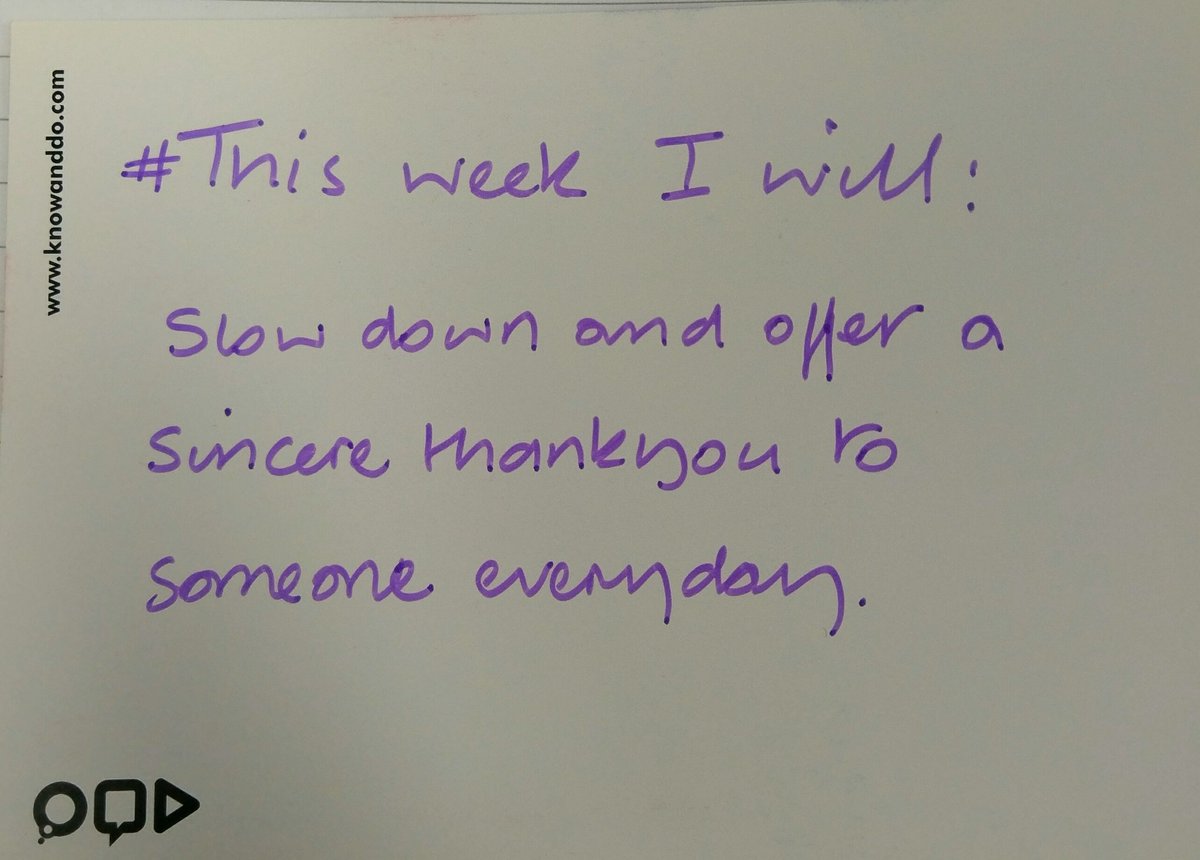 www.knowanddo.com
#This week I will:
Slow down and offer a
sincere thankyou to
someone everyday.